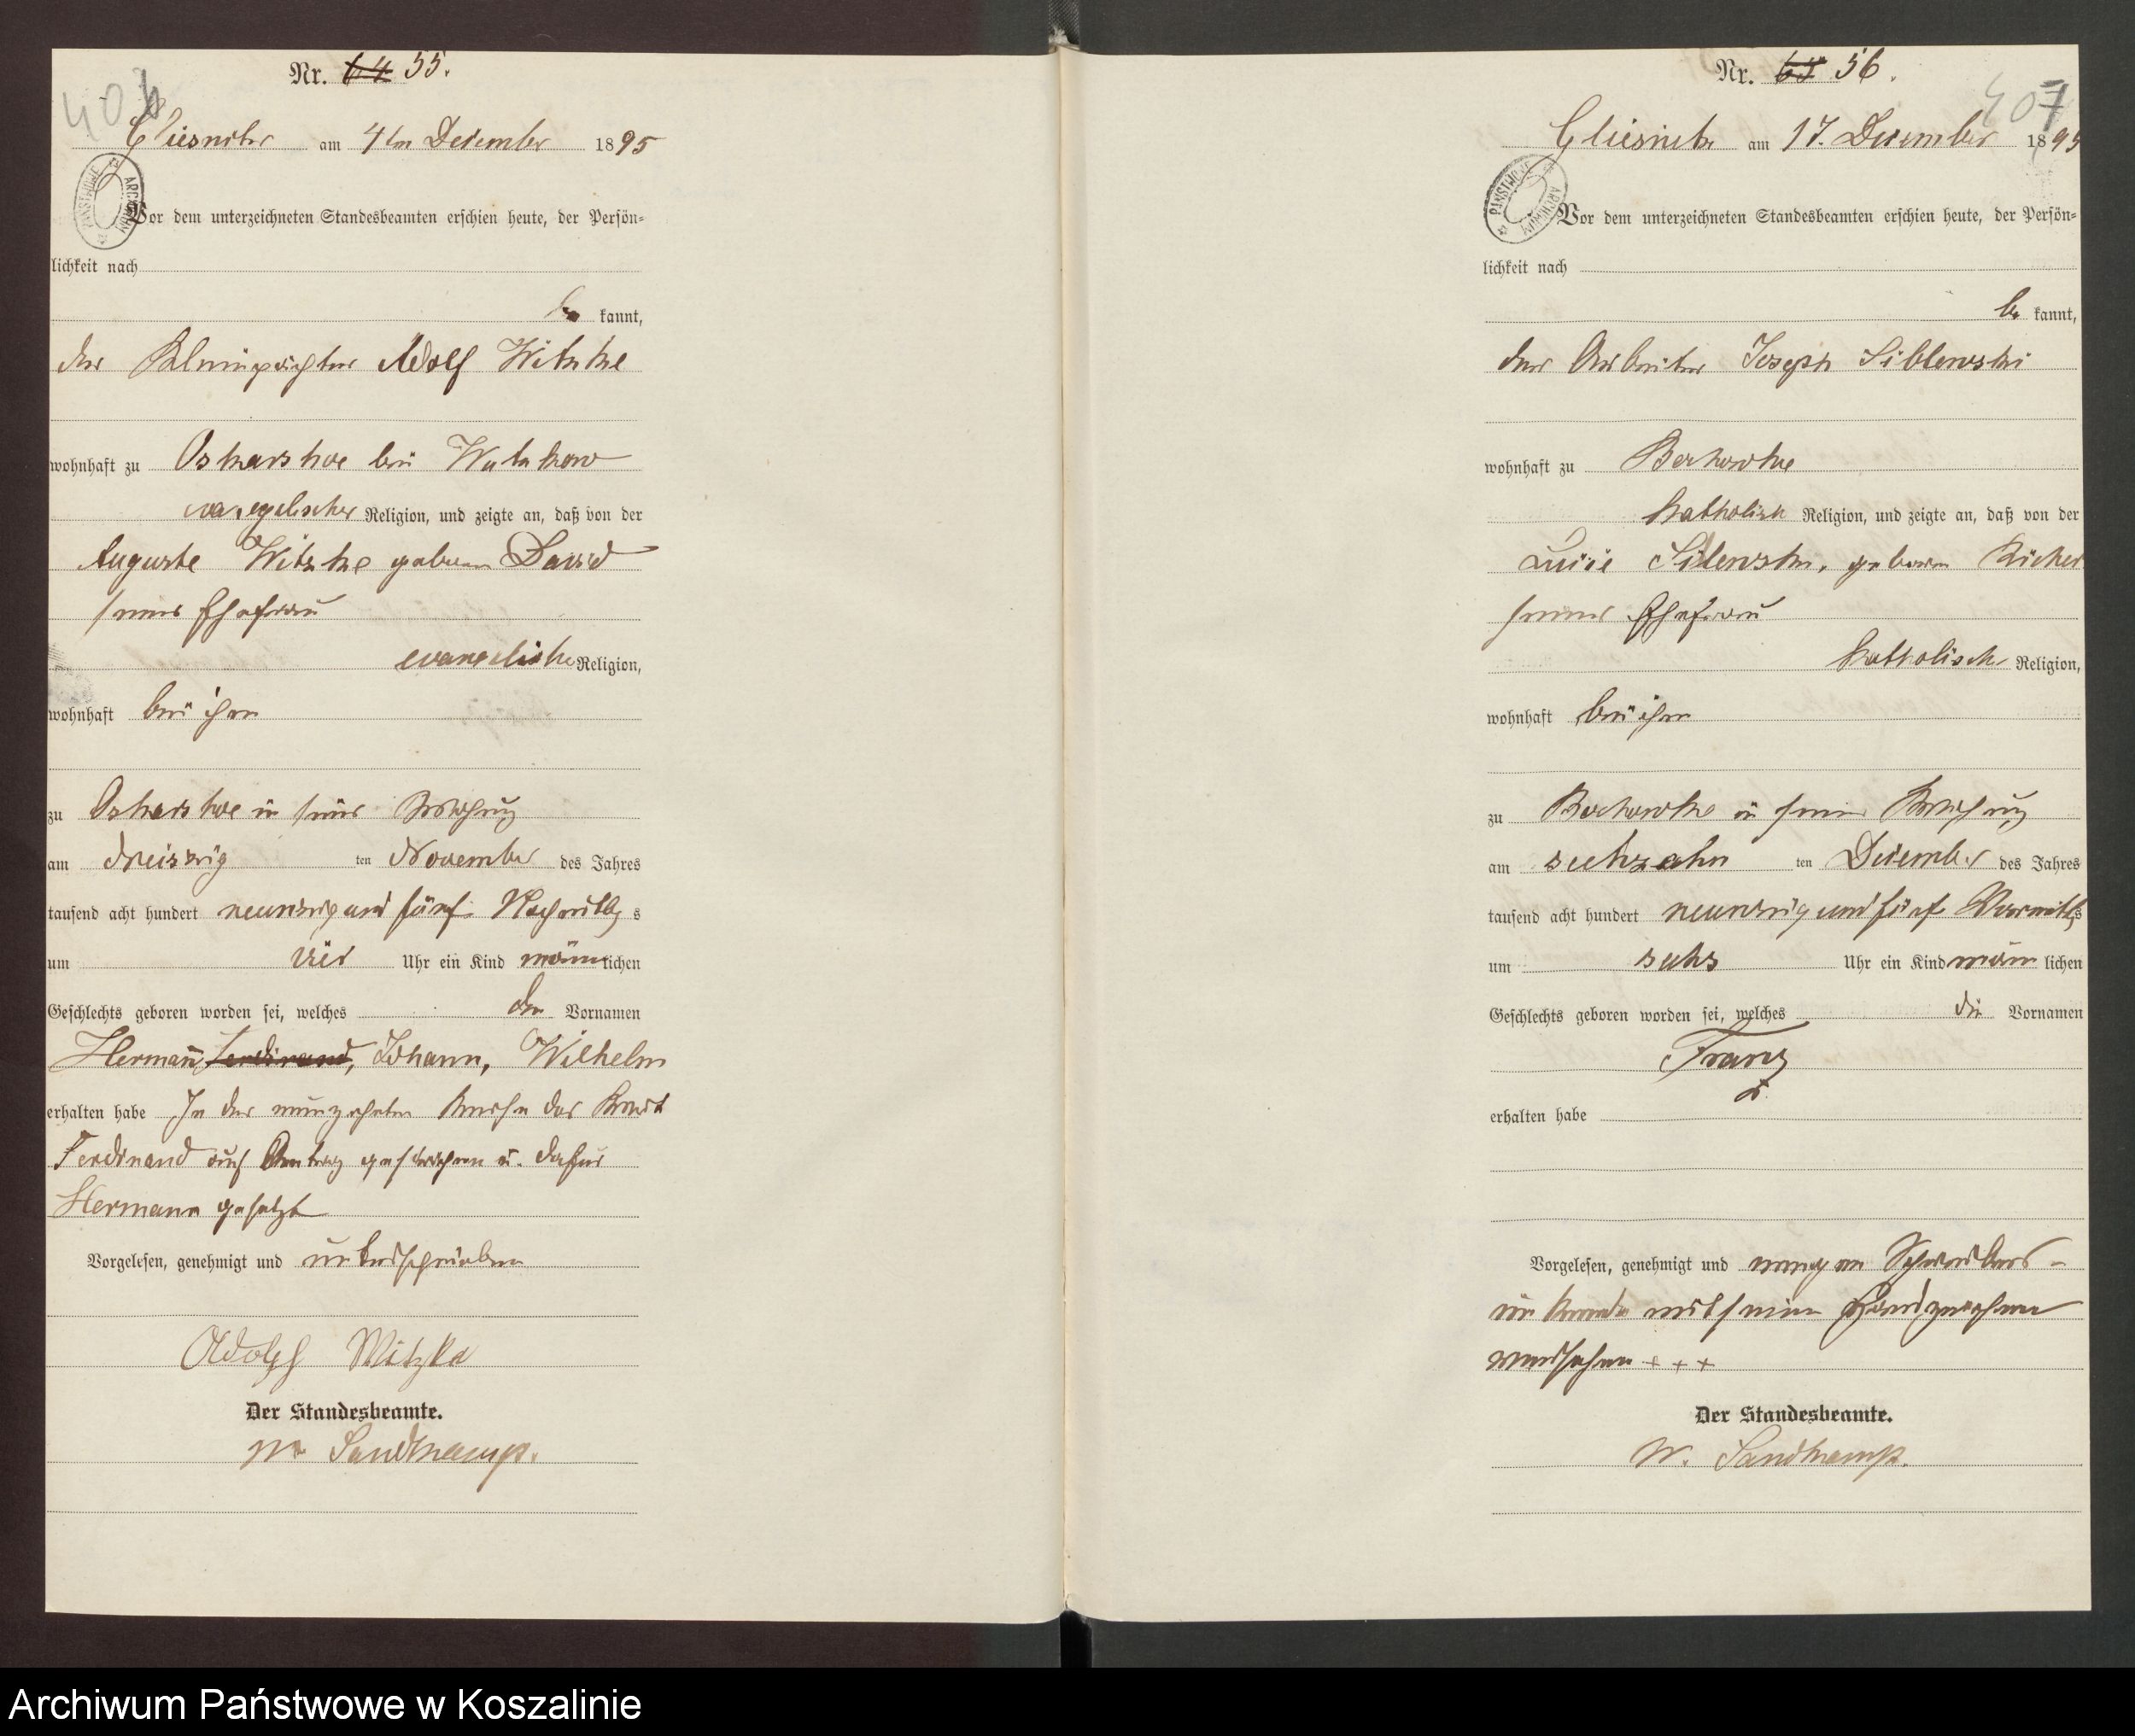 Nr. 64 55.
406
Gliesnitz am 4ten Dezember 1895
ARCHIWUM PAŃSTWOWE
Vor dem unterzeichneten Standesbeamten erschien heute, der Persön=
lichkeit nach
be kannt,
der Adolf Witzke
wohnhaft zu bei
evangelischer Religion, und zeigte an, daß von der
Auguste Witzke geboren David
seiner Ehefrau
evangelische Religion,
wohnhaft bei ihm
zu in seiner Wohnung
am dreiszig ten November des Jahres
tausend acht hundert neunzig und fünf Nachmittags
um vier Uhr ein Kind männlichen
Geschlechts geboren worden sei, welches den Vornamen
Hermann, Ferdinand, Johann, Wilhelm
erhalten habe In der neunzehnten Reihe das Wort
Ferdinand auf Antrag gestrichen u. dafür
Hermann gesetzt
Vorgelesen, genehmigt und unterschrieben
Adolph Witzke
Der Standesbeamte.
W. Sandkamp.
Nr. 65 56.
407
Gliesnitz am 17. Dezember 1895
ARCHIWUM PAŃSTWOWE
Vor dem unterzeichneten Standesbeamten erschien heute, der Persön=
lichkeit nach
be kannt,
der Arbeiter Joseph Siblewski
wohnhaft zu
katholisch Religion, und zeigte an, daß von der
geboren
seiner Ehefrau
katholisch Religion,
wohnhaft bei ihm
zu in seiner Wohnung
am sechzehn ten Dezember des Jahres
tausend acht hundert neunzig und fünf Vormittags
um sechs Uhr ein Kind männlichen
Geschlechts geboren worden sei, welches die Vornamen
Franz
erhalten habe
Vorgelesen, genehmigt und wegen Schreibens-
unkunde mit seinem Handzeichen
versehen + + +
Der Standesbeamte.
W. Sandkamp.
Archiwum Państwowe w Koszalinie